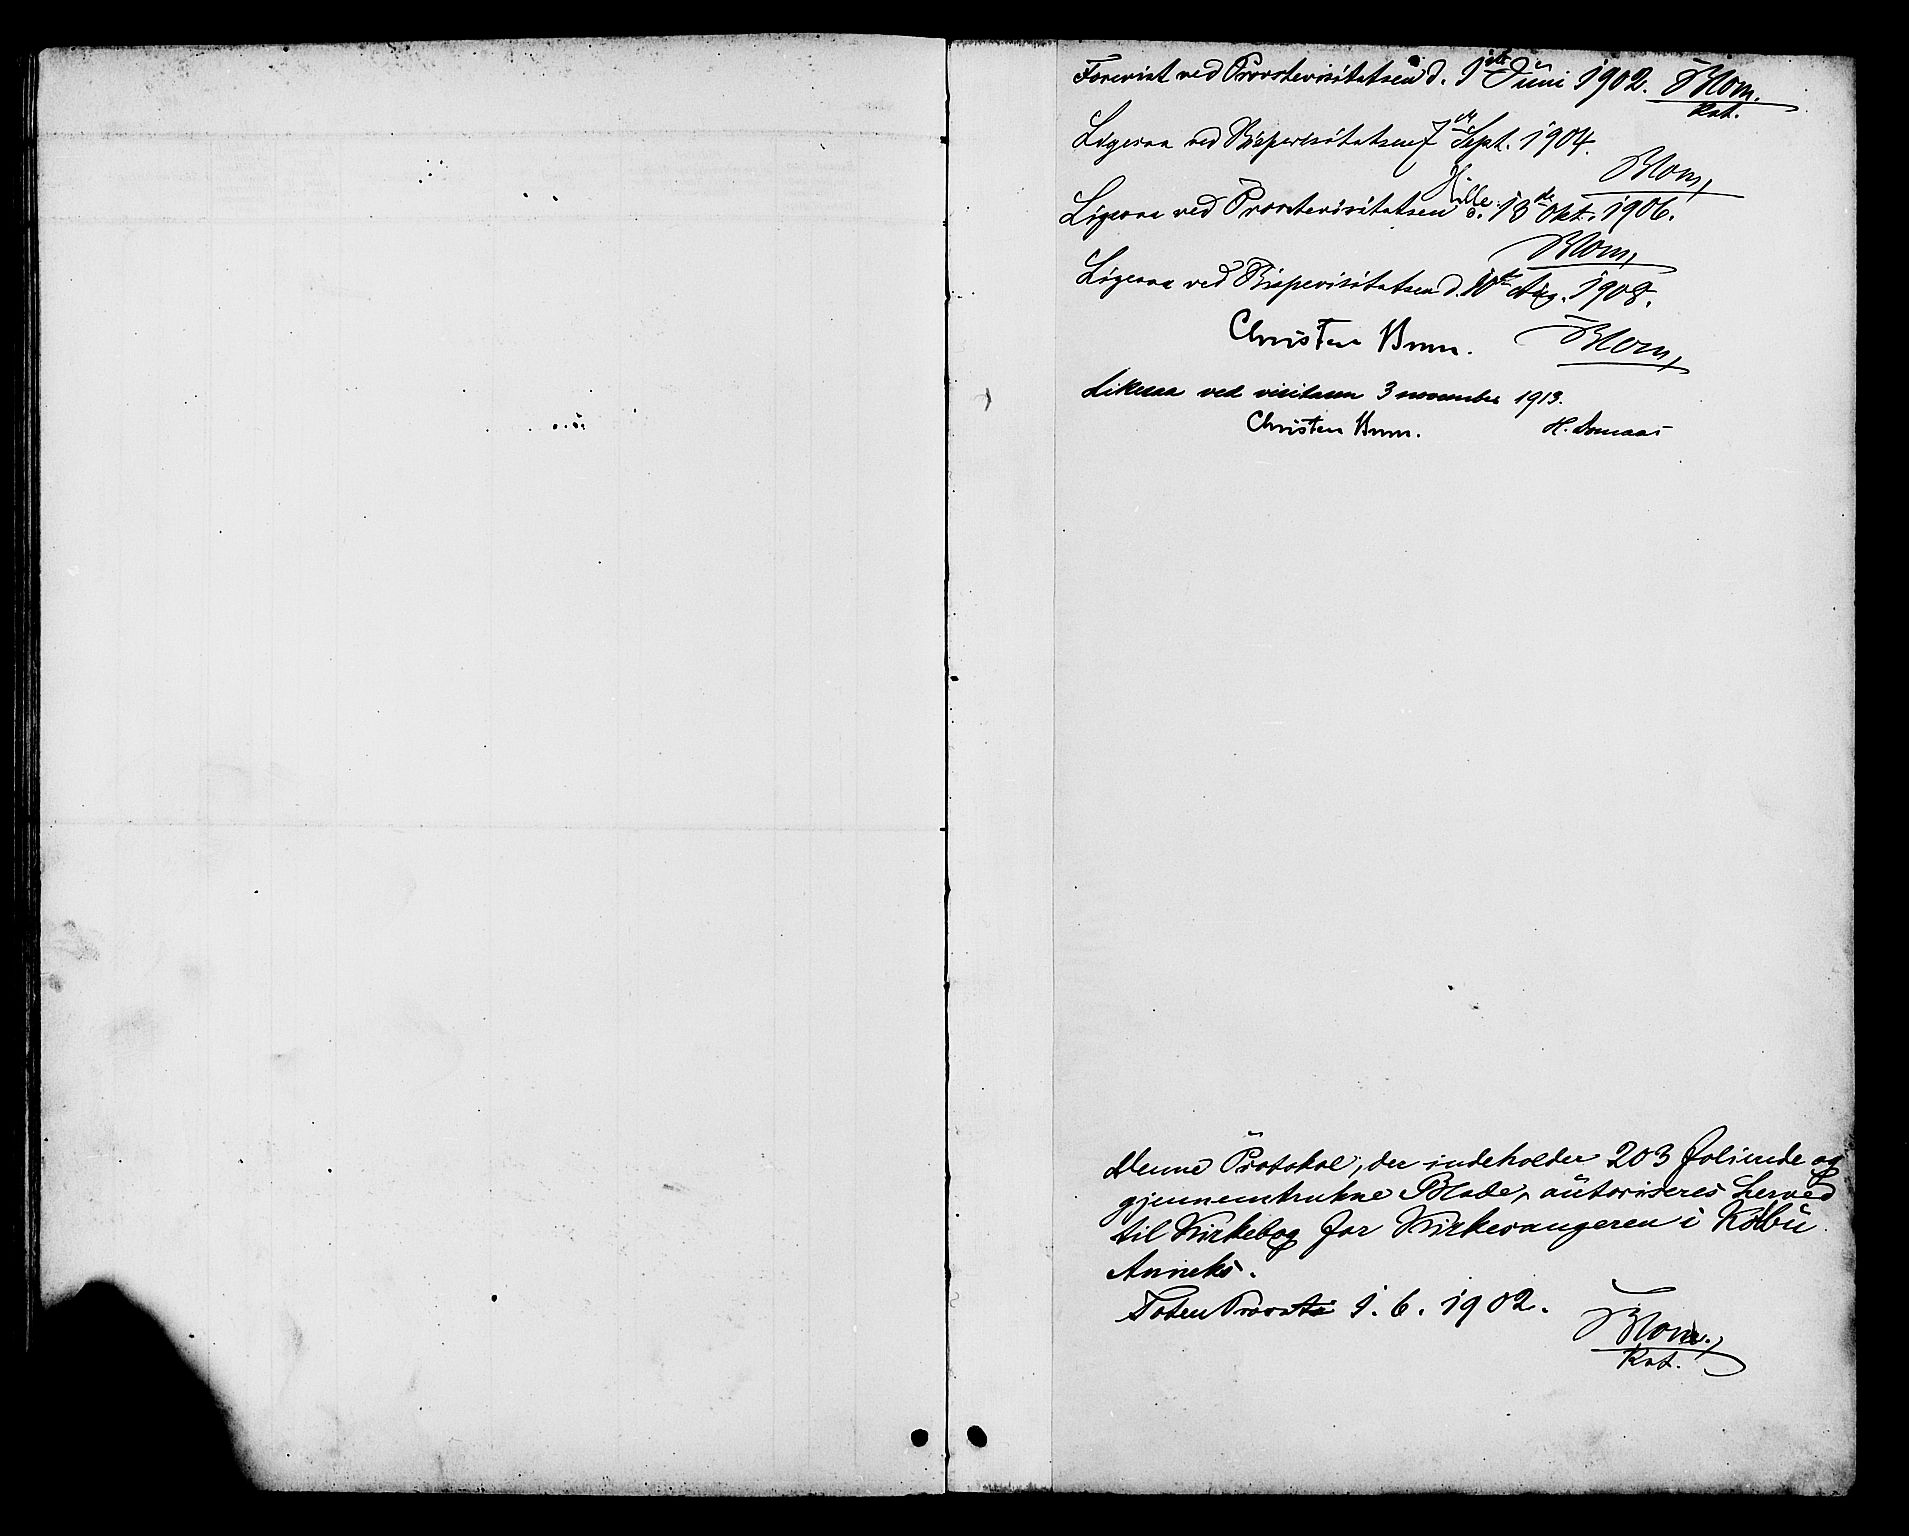 Forevist ved Provstevisitatsen d. 1ste Juni 1902. Blom.
Kst.
Ligesaa ved Bispevisitatsen 7de Sept. 1904.
Hille. Blom,
Ligesaa ved Provstevisitatsen d. 13de Okt. 1906.
Blom,
Ligesaa ved Bispevisitatsen d. 10de Aug. 1908.
Christen Brun. Blom,
Likesaa ved visitasen 3 november 1913.
Christen Brun. H. Domaas
Denne Protokol, der indeholder 203 folierede og
gjennemtrukne Blade, autoriseres herved
til Kirkebog for Kirkesangeren i Kolbu
Anneks.
Toten Provsti 1. 6. 1902.
Blom.,
Kst.